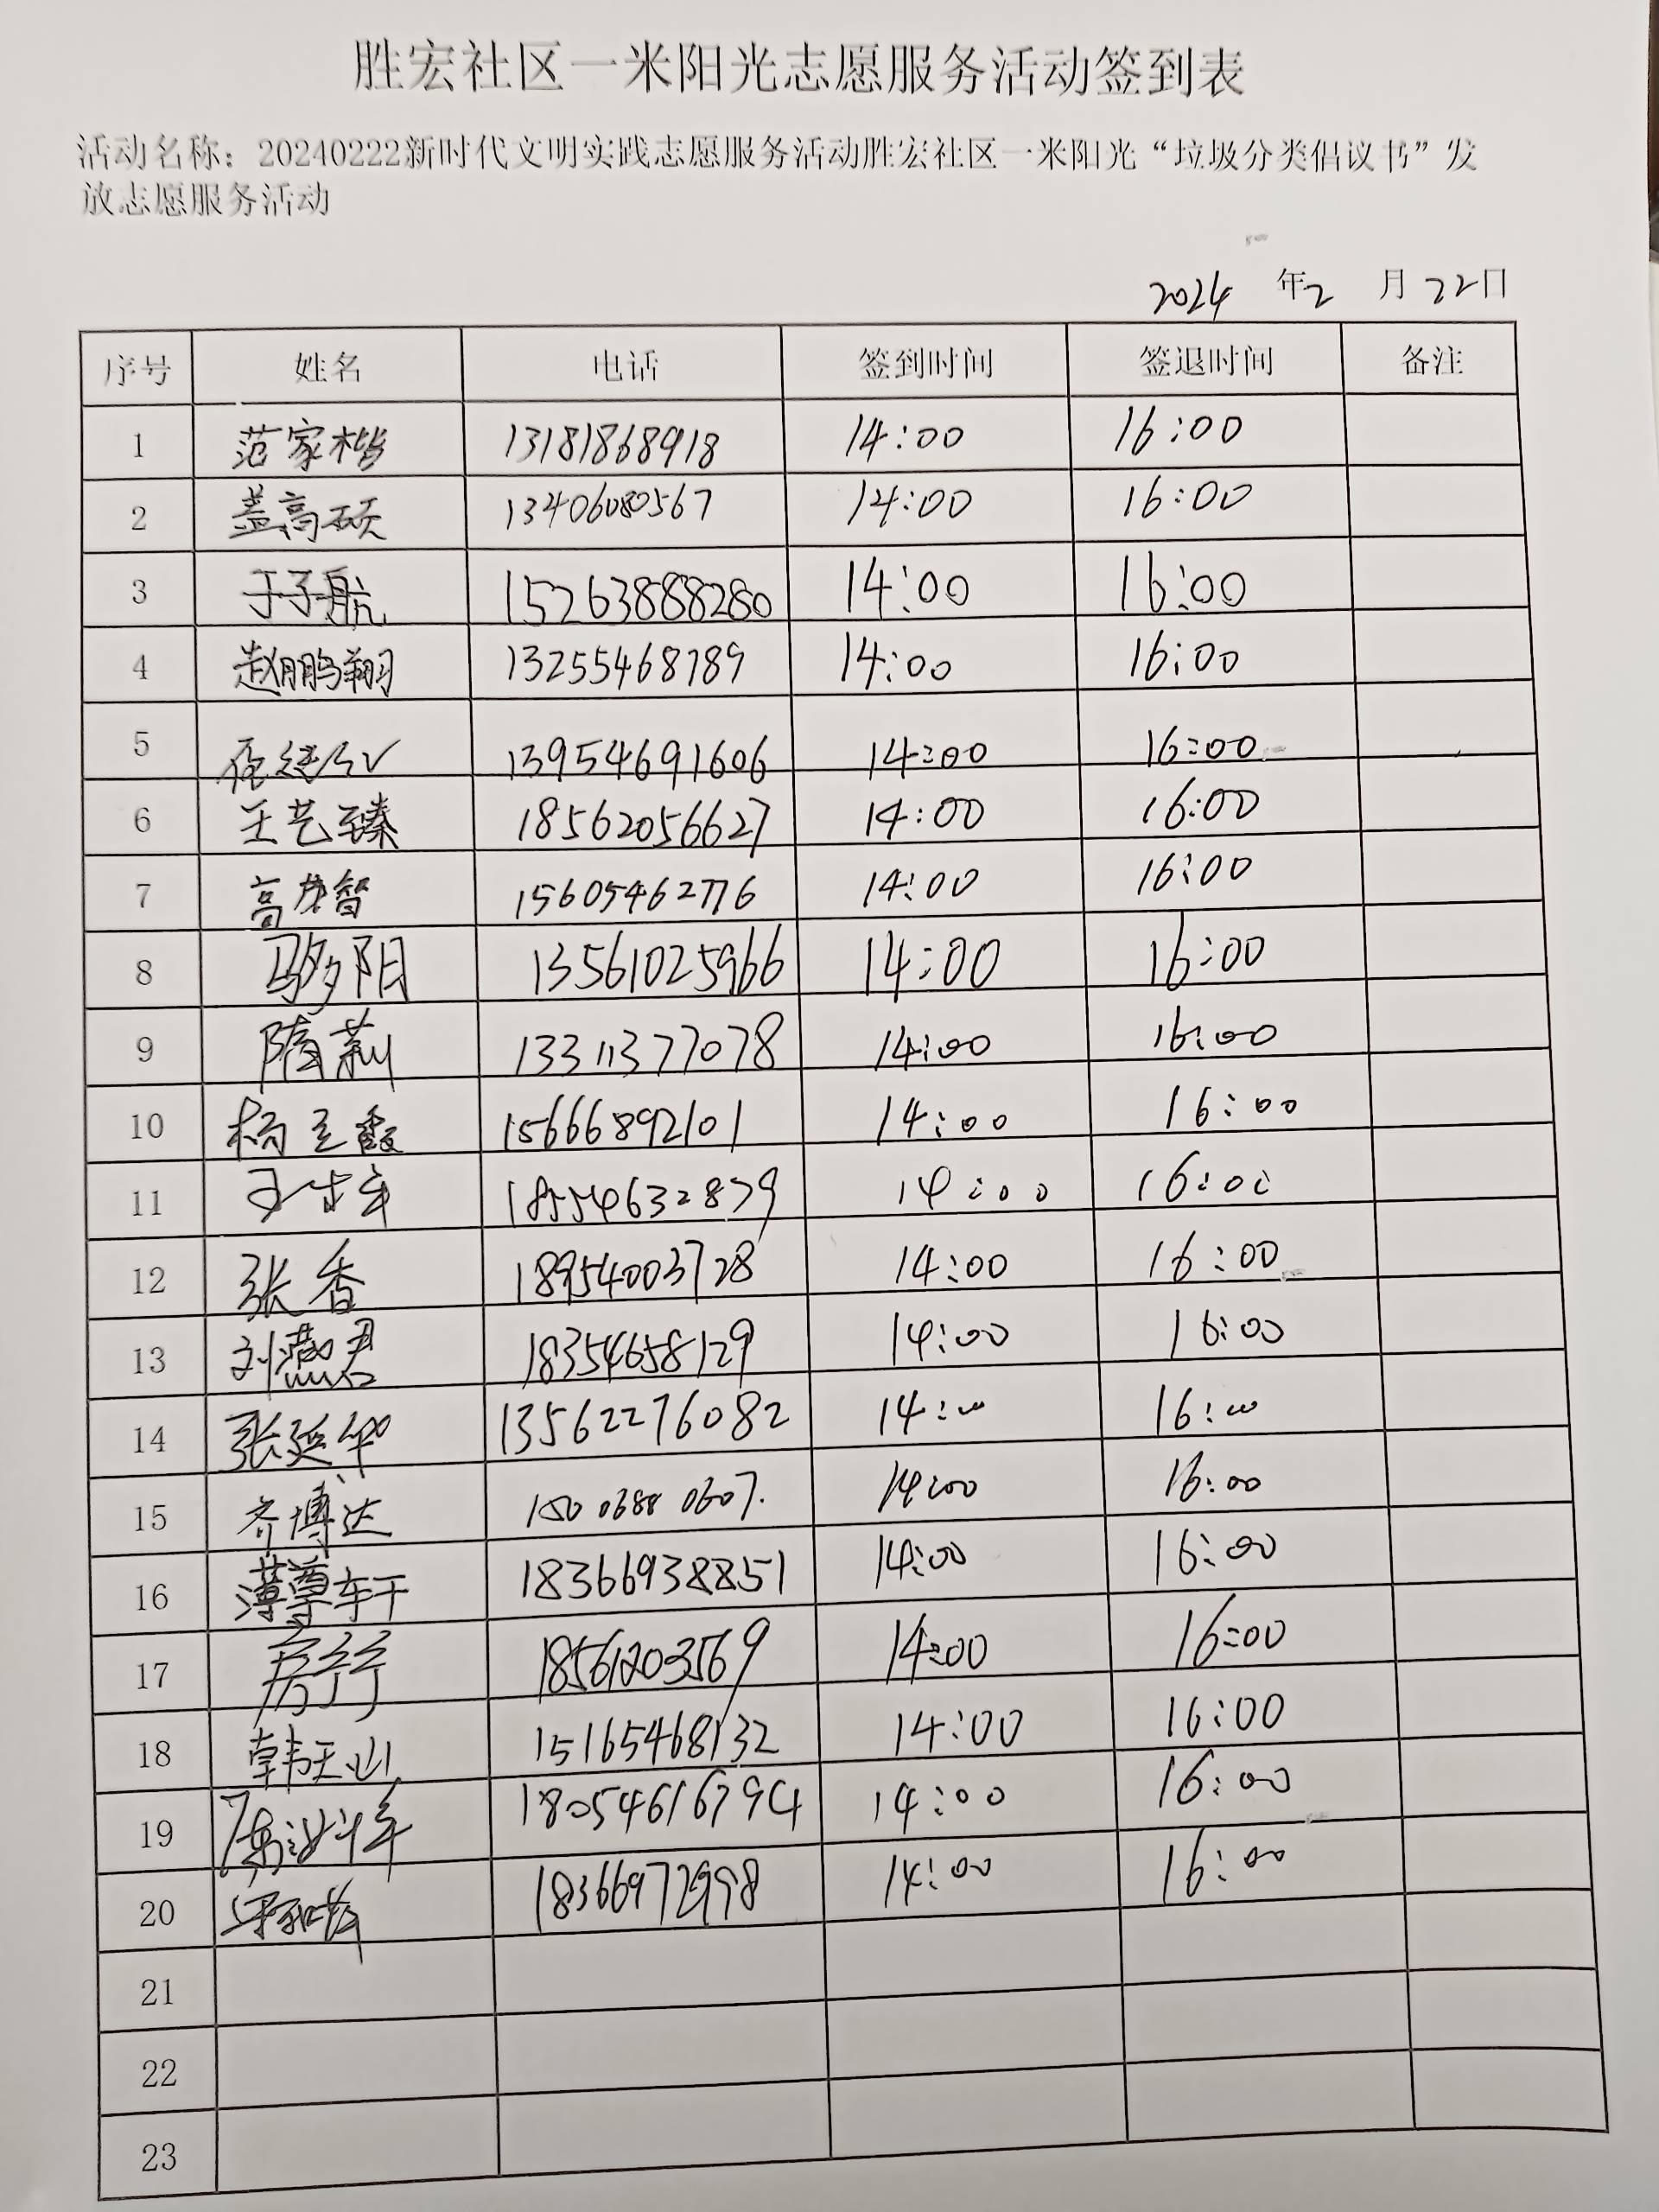 胜宏社区一米阳光志愿服务活动签到表
活动名称：20240222新时代文明实践志愿服务活动胜宏社区一米阳光“垃圾分类倡议书”发
放志愿服务活动
2024 年2 月22日
序号 姓名 电话 签到时间 签退时间 备注
1 范家楷 13181868918 14:00 16:00
2 盖高硕 13406080567 14:00 16:00
3 于子航 15263888280 14:00 16:00
4 赵鹏翔 13255468789 14:00 16:00
5 13954691606 14:00 16:00
6 王艺臻 18562056627 14:00 16:00
7 高茂智 15605462776 14:00 16:00
8 阳 13561025966 14:00 16:00
9 隋莉 13311377078 14:00 16:00
10 杨立霞 15666892101 14:00 16:00
11 18554632879 14:00 16:00
12 张香 18954003728 14:00 16:00
13 刘燕君 18354658129 14:00 16:00
14 张延华 13562276082 14:00 16:00
15 齐博达 14:00 16:00
16 薄尊轩 18366938851 14:00 16:00
17 18561203569 14:00 16:00
18 韩玉山 15165468132 14:00 16:00
19 18054616794 14:00 16:00
20 18366972998 14:00 16:00
21
22
23